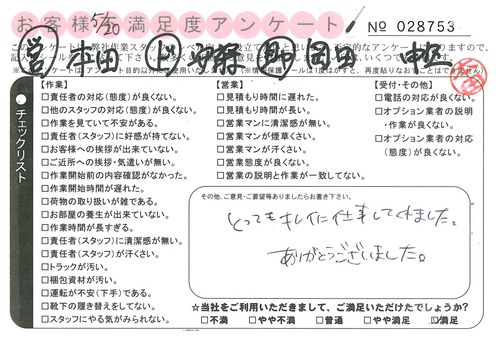 お客様不満足度アンケート
5/20
№ 028753
営 牛田 助 岡田
チェックリスト
【作業】
□責任者の対応(態度)が良くない。
□他のスタッフの対応(態度)が良くない。
□作業を見ていて不安がある。
□責任者(スタッフ)に好感が持てない。
□お客様への挨拶が出来ていない。
□ご近所への挨拶・気遣いが無い。
□作業開始前の内容確認がなかった。
□作業開始時間が遅れた。
□荷物の取り扱いが雑である。
□お部屋の養生が出来ていない。
□作業時間が長すぎる。
□責任者(スタッフ)に清潔感が無い。
□責任者(スタッフ)が汗くさい。
□トラックが汚い。
□梱包資材が汚い。
□運転が不安(下手)である。
□靴下の履き替えをしてない。
□スタッフにやる気がみられない。
【営業】
□見積もり時間に遅れた。
□見積もり時間が長い。
□営業マンに清潔感が無い。
□営業マンが煙草くさい。
□営業マンが汗くさい。
□営業態度が良くない。
□営業の説明と作業が一致してない。
【受付・その他】
□電話の対応が良くない。
□オプション業者の説明
・作業が良くない。
□オプション業者の対応
(態度)が良くない。
その他、ご意見・ご要望等ありましたらお書き下さい。
とってもキレイに仕事してくれました。
ありがとうございました。
☆当社をご利用いただきまして、ご満足いただけたでしょうか?
□不満 □やや不満 □普通 □やや満足 ☑満足